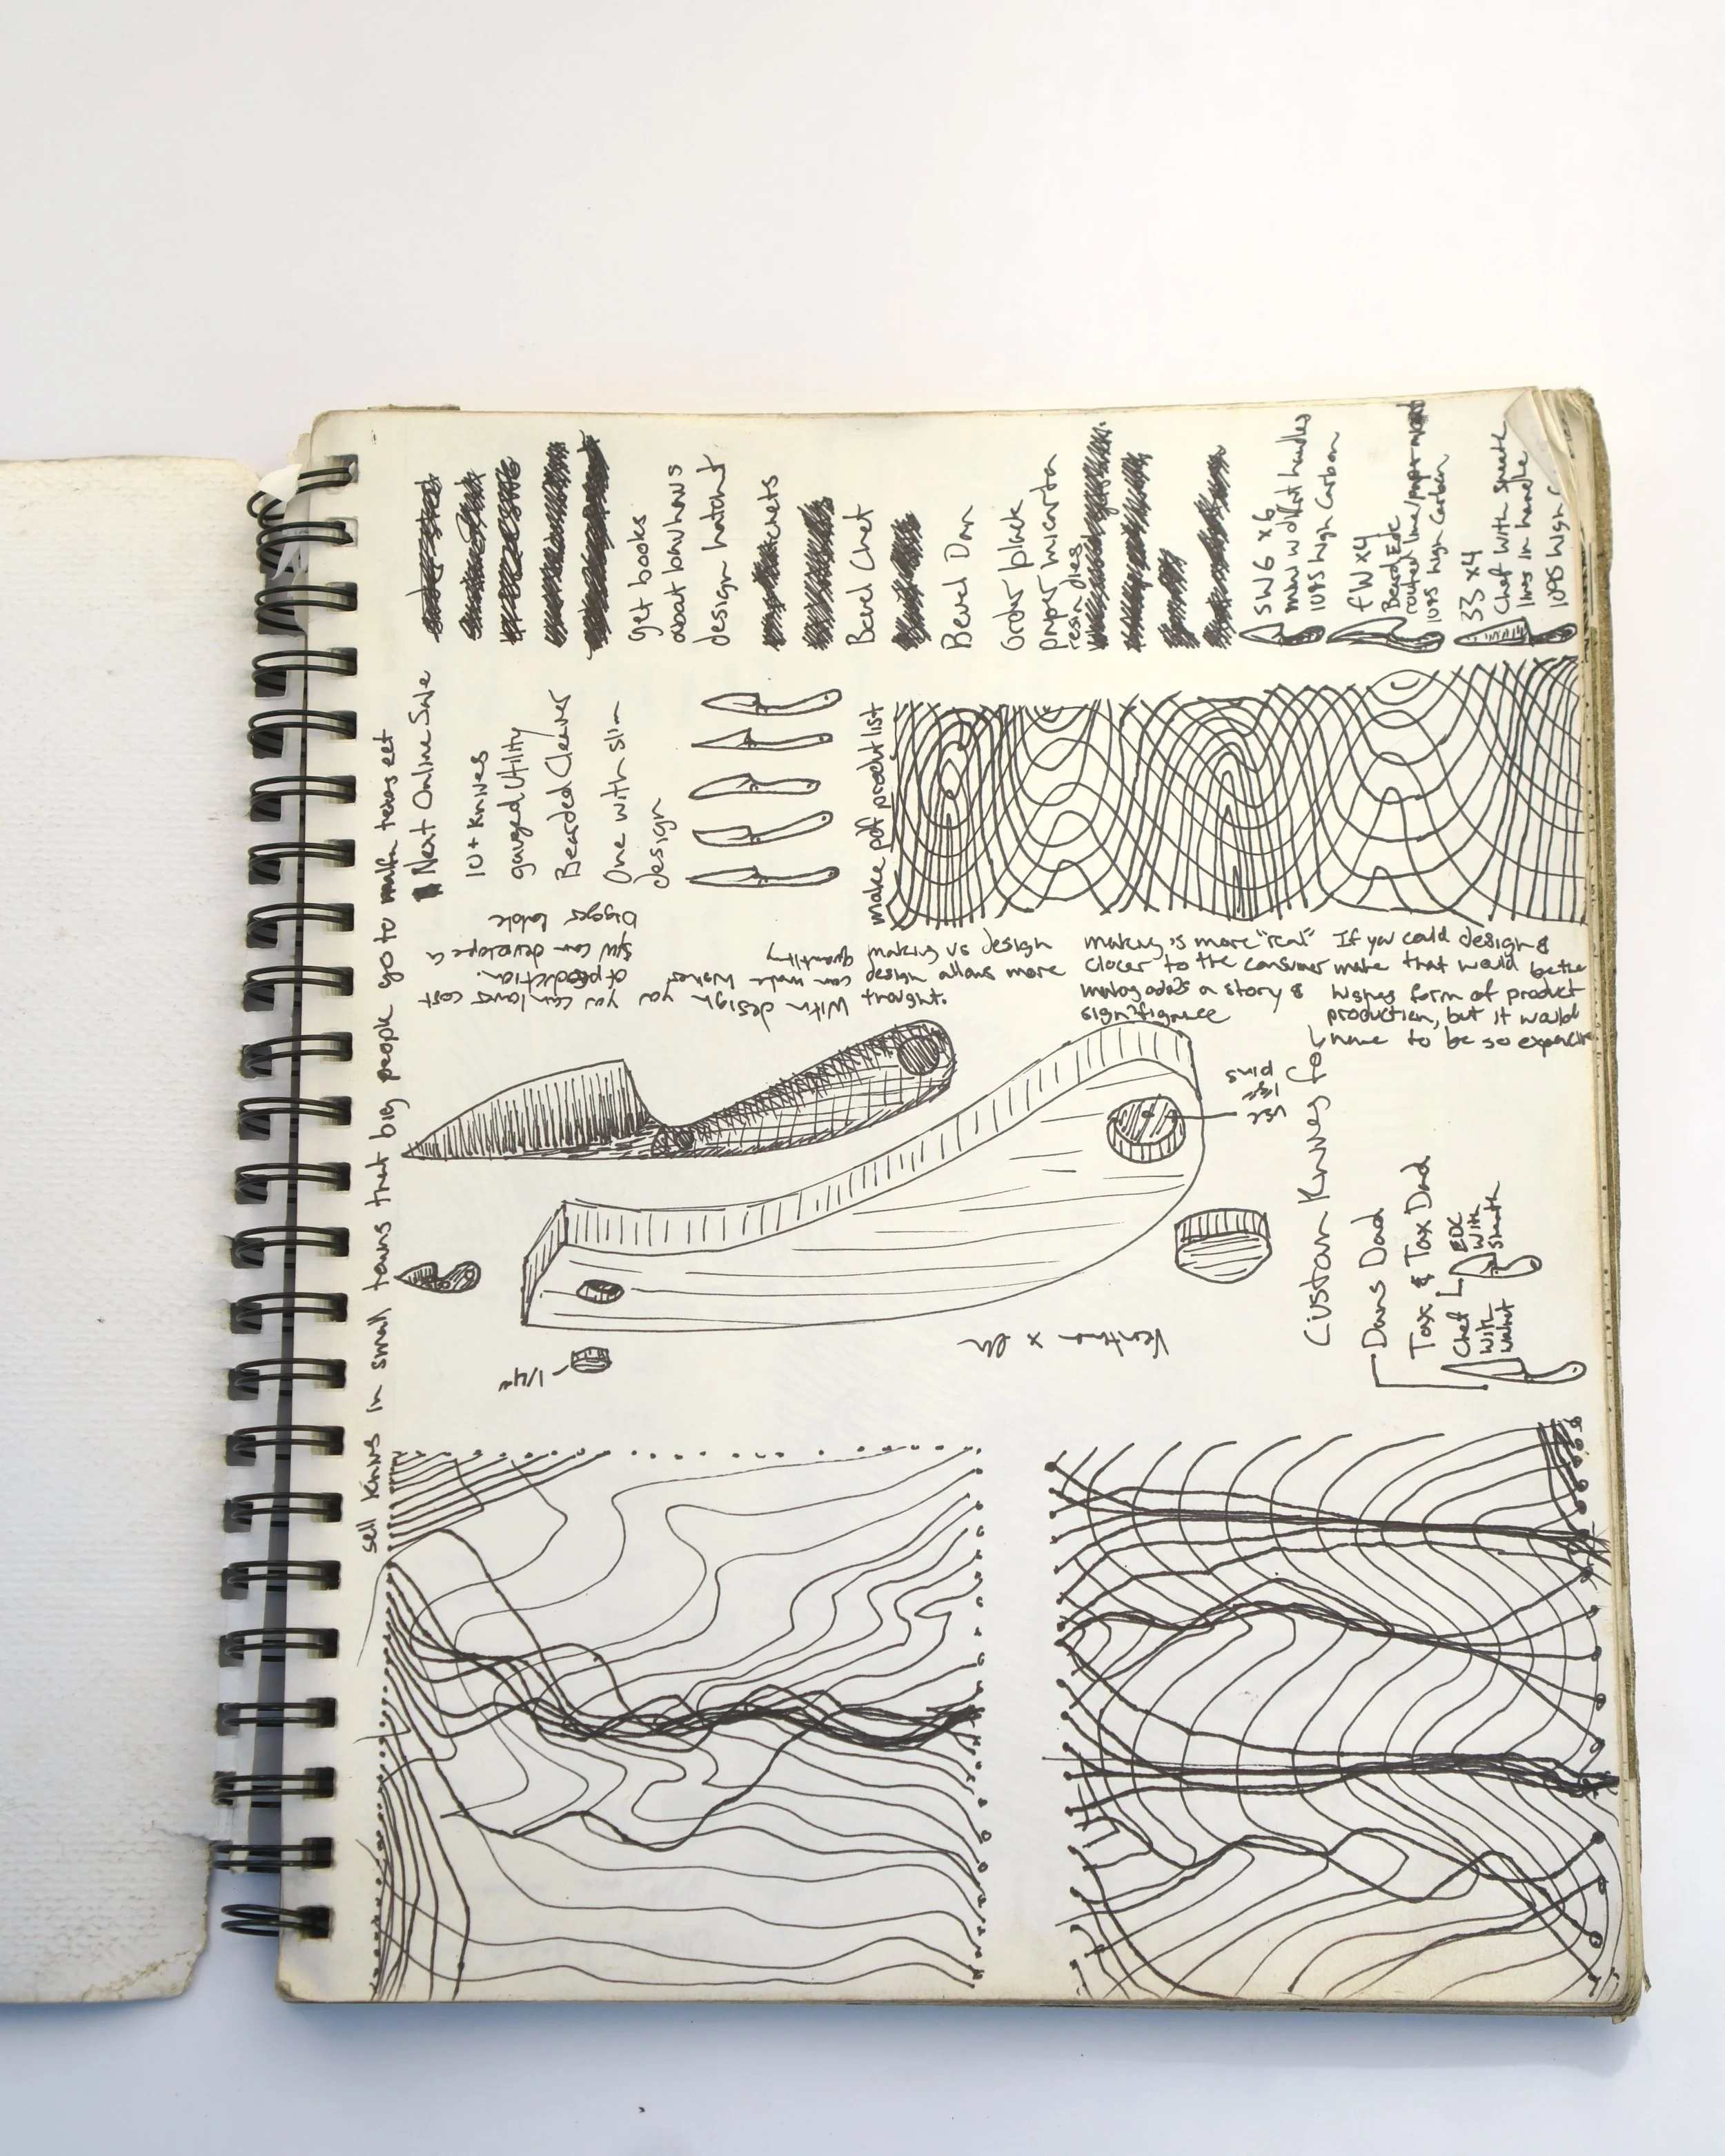 sell knives in small towns that big people go to marfa texas ect
Next Online Sale
10+ knives
gauged utility
Bearded Cleaver
One with slim
design
make pdf product list
get books
about bauhaus
design hatchet
chets
Bevel Chef
Bevel Dan
Order black
paper micarta
resin dies
SW6 x6
mbw w diffrot handles
1095 high Carbon
FW x4
Beard Edc
routed line/
1095 high Carbon
33 x4
Chef with sheath
lines in handle
1095 high
making vs design
design allows more
thought.
With design you can lower cost
of production.
can make higher
quantity
can develope a
bigger
making is more "real"
closer to the consumer
adds a story &
significance
If you could design &
make that would be the
highes form of product
production, but it would
have to be so expencive
use
pins
Custom Knives for
Dans Dad
Tax & Tax Dad
Chef
with
walnut
EDC
with
sheath
1/4"